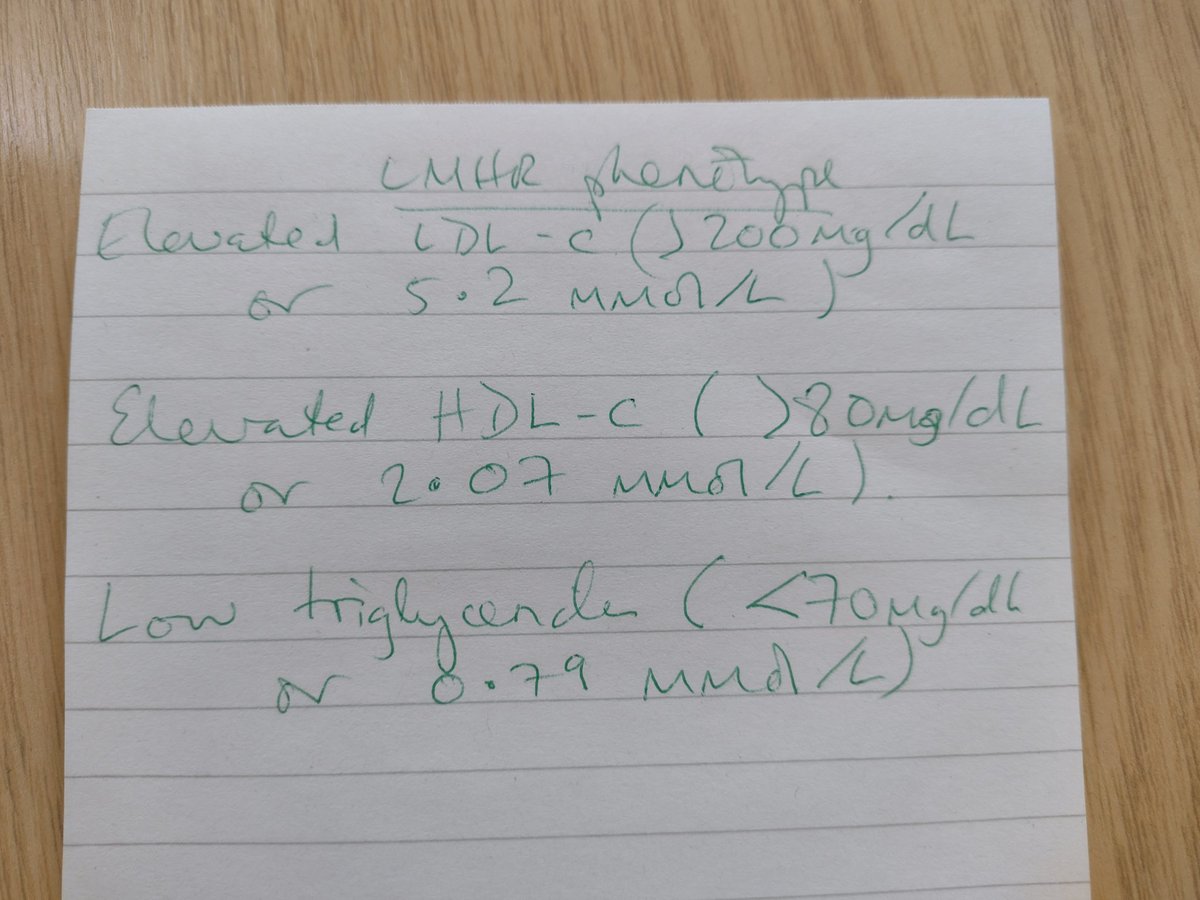 LMHR phenotype
Elevated LDL-C (>200mg/dL
or 5.2 mmol/L)
Elevated HDL-C (>80mg/dL
or 2.07 mmol/L).
Low triglycerides (<70mg/dL
or 0.79 mmol/L)